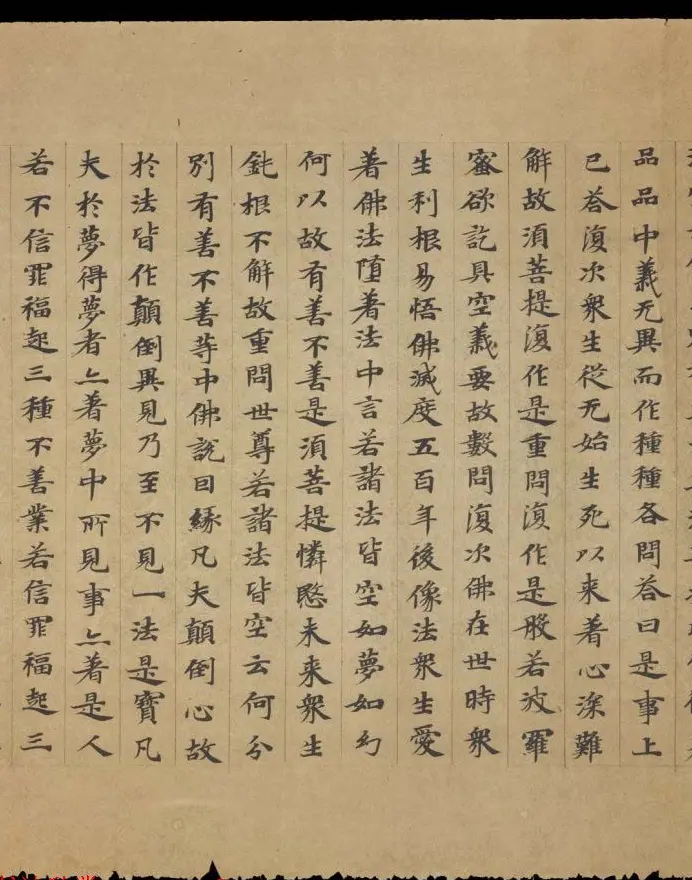 品品中義无異而作種種各問荅曰是事上
已荅復次衆生從无始生死以来著心深難
解故湏菩提復作是重問復作是般若波羅
蜜欲訖具空義要故數問復次佛在世時衆
生利根易悟佛滅度五百年後像法衆生愛
著佛法堕著法中言若諸法皆空如夢如幻
何以故有善不善是湏菩提憐愍未来衆生
鈍根不解故重問世尊若諸法皆空云何分
別有善不善等中佛說囙緣凡夫顛倒心故
於法皆作顛倒異見乃至不見一法是實凡
夫於夢得夢者亦著夢中所見事亦著是人
若不信罪福起三種不善業若信罪福起三